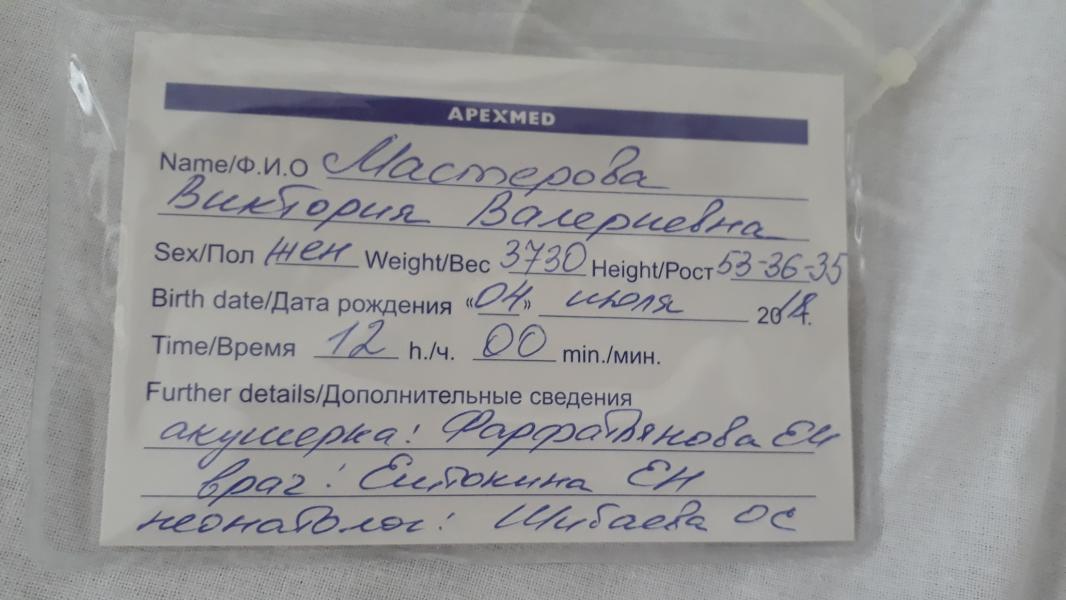 APEXMED
Name/Ф.И.О Мастерова
Виктория Валериевна
Sex/Пол жен Weight/Вес 3730 Height/Рост 53-36-35
Birth date/Дата рождения «04» июля 2018г.
Time/Время 12 h./ч. 00 min./мин.
Further details/Дополнительные сведения
акушерка: ЕН
врач: ЕН
неонатолог: Шибаева ОС